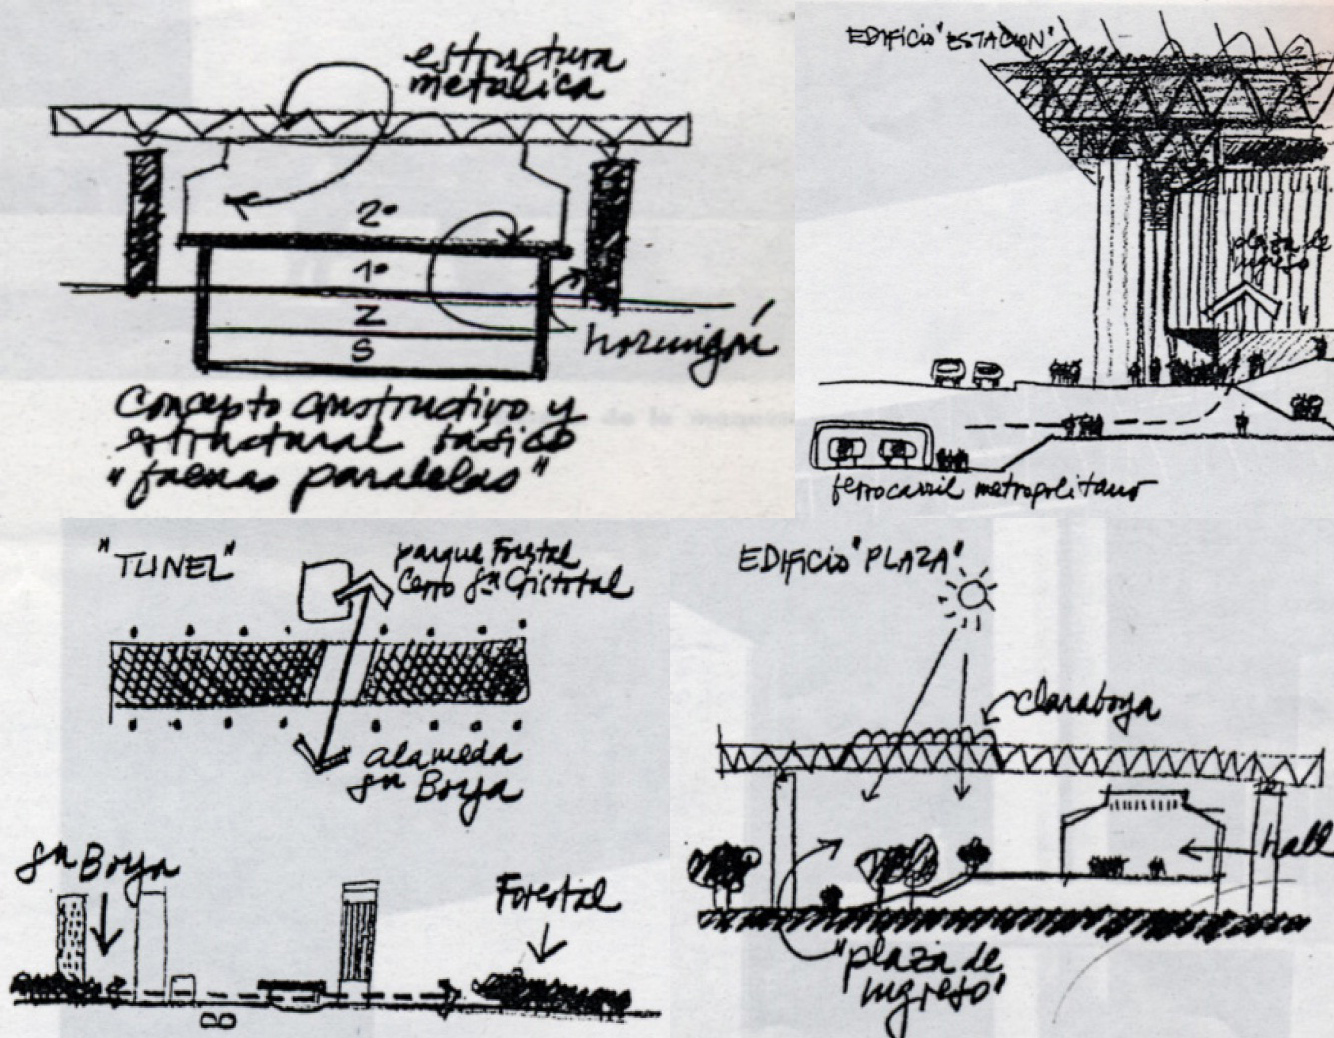 estructura
metalica
2º
1º
Z
S
hormigón
Concepto constructivo y
estructural basico
"faenas paralelas"
EDIFICIO "ESTACION"
plaza de
ingreso
ferrocarril metropolitano
"TUNEL"
parque Forestal
Cerro Sn Cristobal
alameda
Sn Borja
Sn Borja
Forestal
EDIFICIO "PLAZA"
claraboya
hall
"plaza de
ingreso"